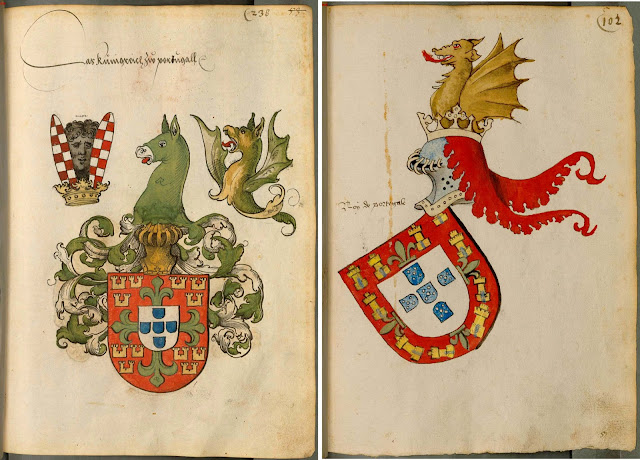 238
Das Kunigreich zw portugall
102
Roy de portugale